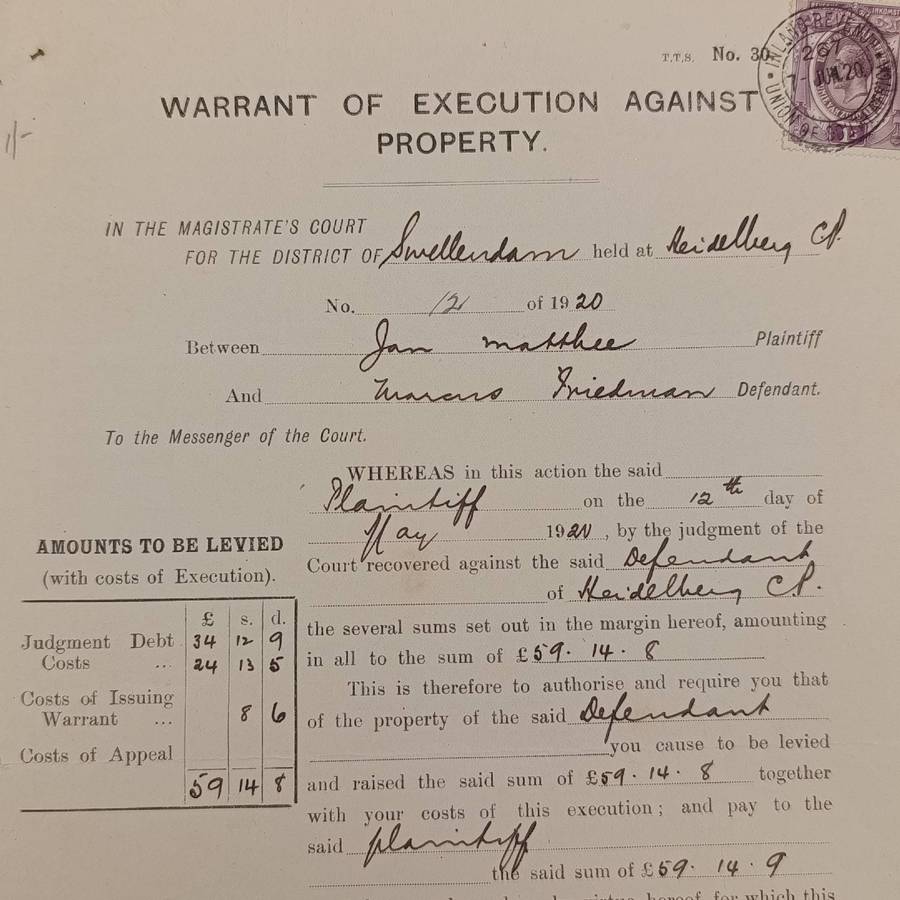 1/-
T.T.S. No. 30.
INLAND REVENUE
267
7 - JUN 20
UNION OF
WARRANT OF EXECUTION AGAINST
PROPERTY.
IN THE MAGISTRATE'S COURT
FOR THE DISTRICT OF Swellendam held at Heidelberg CP.
No. 12 of 1920
Between Jan Matthee Plaintiff
And Marcus Friedman Defendant.
To the Messenger of the Court.
WHEREAS in this action the said
Plaintiff on the 12th day of
May 1920, by the judgment of the
Court recovered against the said Defendant
of Heidelberg C.P.
the several sums set out in the margin hereof, amounting
in all to the sum of £59. 14. 8
This is therefore to authorise and require you that
of the property of the said Defendant
you cause to be levied
and raised the said sum of £59. 14. 8 together
with your costs of this execution; and pay to the
said plaintiff
the said sum of £59. 14. 9
hereof, for which this
AMOUNTS TO BE LEVIED
(with costs of Execution).
£ s. d.
Judgment Debt 34 12 9
Costs ... 24 13 5
Costs of Issuing
Warrant ... 8 6
Costs of Appeal
59 14 8